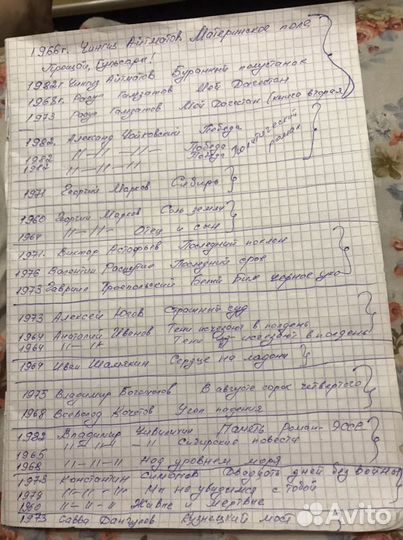 1966г. Чингиз Айтматов Материнское поле
Прощай, Гульсары!
1982г Чингиз Айтматов Буранный полустанок
1968г. Расул Гамзатов Мой Дагестан
1973 Расул Гамзатов Мой Дагестан (книга вторая)
1982, Александр Чаковский Победа
1982 —11—11— Победа политический
1982 —11—11— Победа роман
1971 Георгий Марков Сибирь
1960 Георгий Марков Соль земли
1964 —11—11— Отец и сын
1971. Виктор Астафьев Последний поклон
1976 Валентин Распутин Последний срок
1973 Гавриил Троепольский Белый Бим черное ухо
1973 Алексей Югов Страшный суд
1964 Анатолий Иванов Тени исчезают в полдень
1964 —11—11 Тени исчезают в полдень
1967 Иван Шамякин Сердце на ладони
1975 Владимир Богомолов В августе сорок четвертого
1968 Всеволод Кочетов Угол падения
1982 Владимир Чивилихин Память Роман-Эссе
1965 —11—11—11 Сибирские повести
1968 11—11—11 Над уровнем моря
1973 Константин Симонов Двадцать дней без войны
1979 11—11—11 Мы не увидимся с тобой
11—11—11 Живые и мертвые
1973 Савва Дангулов Кузнецкий мост
Avito